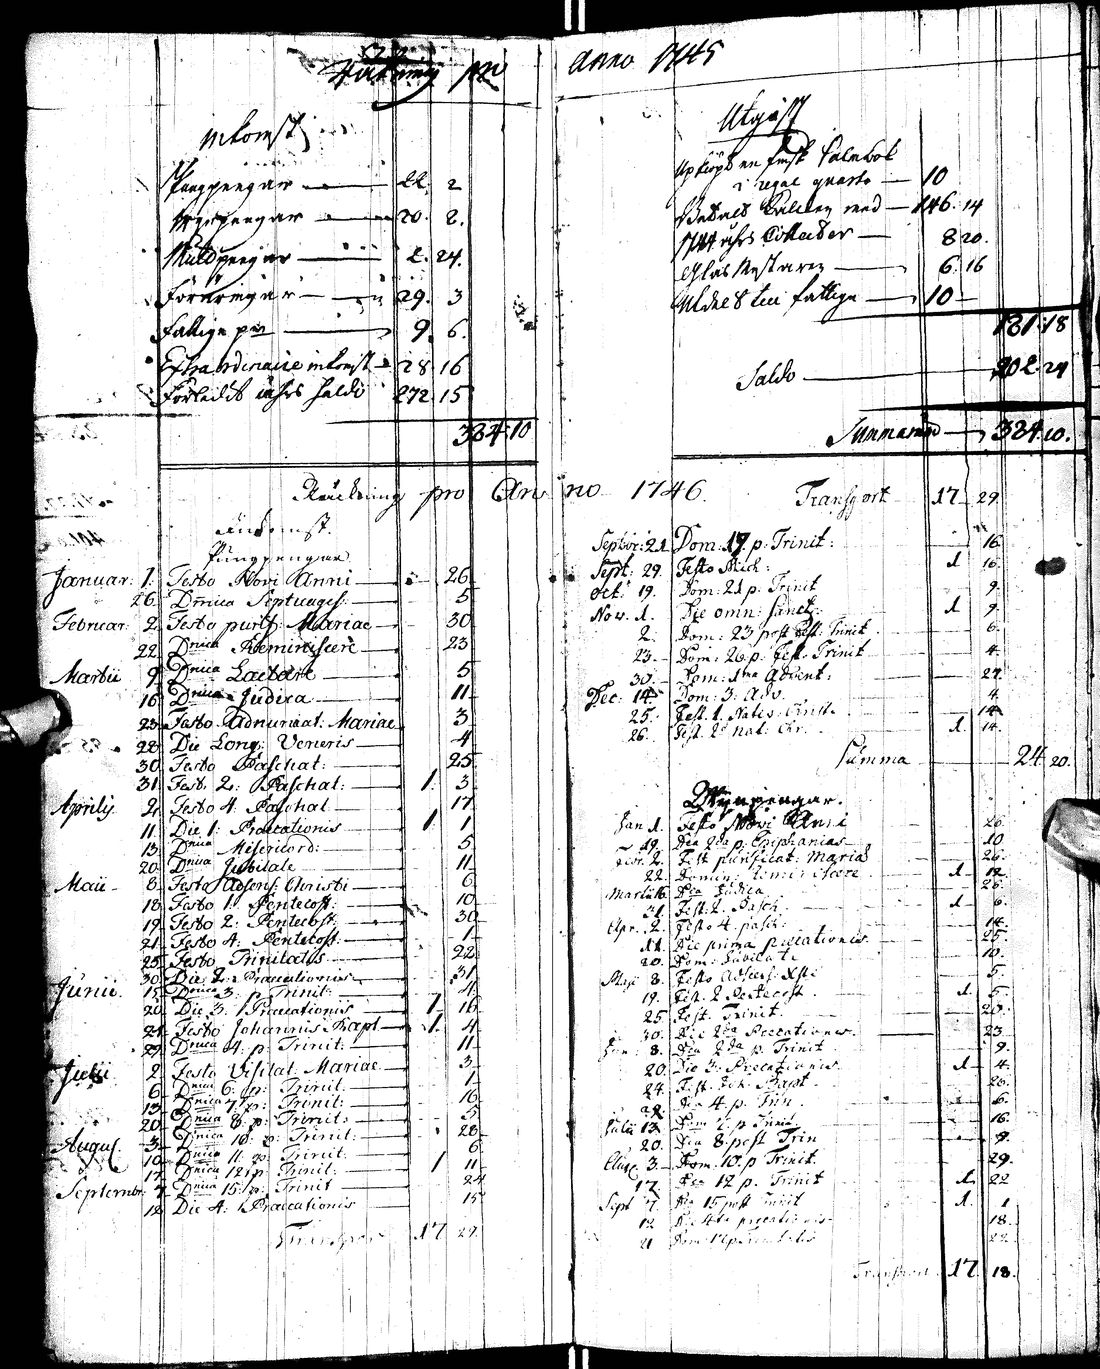 Räkning pro
inkomst
Pungpengar 22. 2
Wynpengar 20. 2.
Muldpengar 2. 24.
Föräringar 29. 3
Fattige 9. 6.
Extraordinaire inkomst 28 16
Förledit åhrs Saldo 272 15
384:10
Räckning pro An
Inkomst.
Pungpengar
Januar: 1. Festo Novi Anni 26
26. Dnica Septuages: 5
Februar: 2. Festo purif: Mariae 30
22. Dnica Reminiscere 23
Martii 9. Dnica Laetare 5
16 Dnica Judica 11
23. Festo Adnunciat: Mariae 3
28. Die Long: Veneris 4
30 Festo Paschat: 25
31. Fest. 2: Paschat: 1. 3
Aprilis. 2. Festo 4. Paschat 17
11. Die 1: Praecationis 1 1
13. Dnica Misericord: 5
20. Dnica Jubilate 11
Maii 8. Festo Adscens: Christi 6
18 Festo 1: Pentecost: 10
19. Festo 2: Pentecost: 30
21. Festo 4: Pentecost: 1
25. Festo Trinitatis 22
30. Die 2: Praecationis 31
Junii. 15. Dnica 3. Trinit: 4
20. Die 3: Praecationis 1 16
24. Festo Johannis Bapt. 1. 4
29. Dnica 4. p: Trinit: 11
Julii 2. Festo Visitat. Mariae 3
6. Dnica 6. p: Trinit: 1
13. Dnica 7. p: Trinit: 16
20. Dnica 8. p: Trinit: 5
August. 3. Dnica 10. p: Trinit: 28
10. Dnica 11. p: Trinit: 6
17. Dnica 12. p: Trinit: 1 11
Septembr. 7. Dnica 15. p: Trinit 24
12. Die 4: Praecationis 15
Transport 17 29.
anno 1745
Utgift
Upköpt en finsk Salmbok
i regal quarto 10
med 146. 14
1744 åhrs Collecter 8 20.
Glas Mestaren 6. 16
till fattiga 10
181:18
Saldo 202. 24
Summa 384. 10.
no 1746.
Transport 17 29.
Septbr: 21. Dom: 17. p: Trinit: 16
Sept: 29. Festo Mich: 1 16.
Oct: 19. Dom: 21 p: Trinit 9.
Nov. 1. Die omn: sanct: 1 9.
2. Dom: 23 post Fest: Trinit 6.
23. Dom: 26 p: Fest. Trinit 4.
30. Dom: 1ma Advent: 27.
Dec: 14. Dom: 3. Adv. 4.
25. Fest. 1. Natis: Christ. 14.
26. Fest. 2. Nat: Chr. 1. 14.
Summa 24 20.
Wynpengar.
Jan 1. Festo Novi Anni 26.
19. Dca 2da p. Epiphanias 10
Febr. 2. Fest purificat: Maria 26.
22. Domin: Reminiscere 1. 12.
Martii 16. Dca Judica 26.
31. Fest. 2. Pasch. 1 6.
Apr. 2. Festo 4 pasch. 14.
11. Die prima precationis. 25.
20. Dom: Jubilate 10.
Maji 8. Festo Adscens: Xsti 5.
19. Fest. 2 Pentecost. 1. 5.
25. Fest. Trinit. 20.
30. Die 2da Precationis. 23
Jun: 8. Dca 2da p. Trinit 9.
20. Die 3. Precationis 1 4.
24. Fest. Joh: Bapt. 26.
29. Dca 4 p. Trin. 6.
Julii 13. Dom 7 p Trinit 16.
20. Dca 8 post Trin 9.
Aug. 3. Dom. 10. p Trinit. 29.
17. Dca 12 p. Trinit 1. 22
Sept 7. Dca 15 post Trinit 1. 1
12. Die 4ta precationis 18.
21 Dom 17 p Trinitatis 22.
Transport 17. 18.